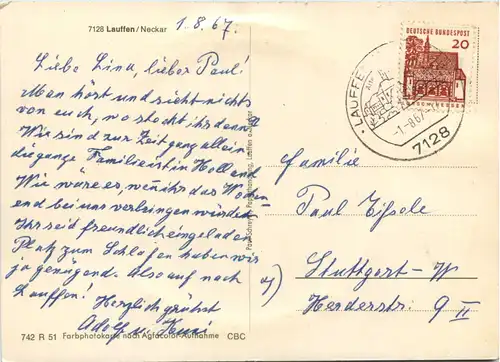 7128 Lauffen/Neckar
1.8.67.
Liebe Lina, lieber Paul!
Man hört und sieht nichts
von euch, wo steckt ihr denn?
Wir sind zur Zeit allein,
die ganze Familie ist in Holland
Wie wäre es, wenn ihr das Wochen-
end bei uns verbringen würdet
Ihr seid freundlich eingeladen
Platz zum Schlafen haben wir
ja genügend. Also auf nach
Lauffen!
Herzlich grüsst
Adolf u.
742 R 51 Farbphotokarte nach Agfacolor-Aufnahme CBC
DEUTSCHE BUNDESPOST
20
LAUFFE
-1.-8.67
7128
Familie
Paul
Stuttgart-W
Herderstr. 9 II